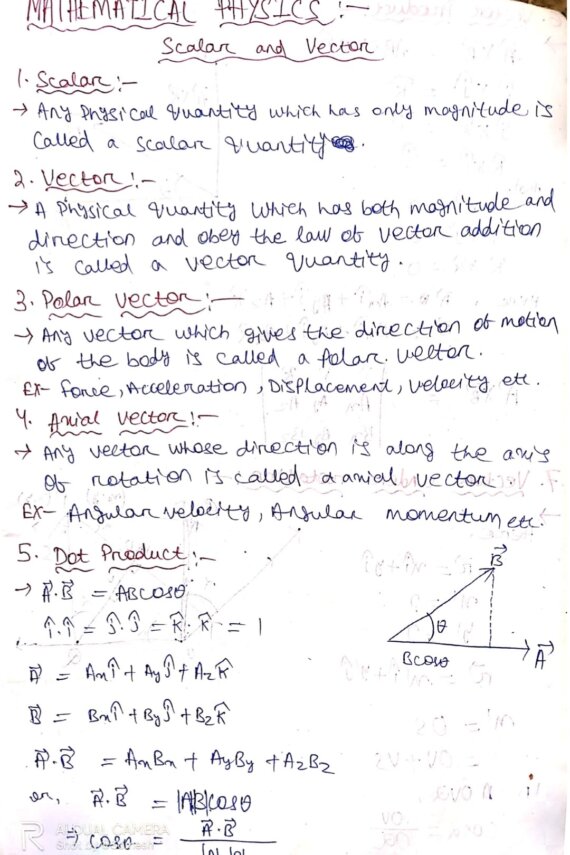 MATHEMATICAL PHYSICS :-
Scalar and Vector
1. Scalar :-
→ Any Physical quantity which has only magnitude is
called a scalar quantity.
2. Vector :-
→ A Physical quantity which has both magnitude and
direction and obey the law of vector addition
is called a vector quantity.
3. Polar vector :-
→ Any vector which gives the direction of motion
of the body is called a polar vector.
Ex- force, Acceleration, Displacement, velocity etc.
4. Axial vector :-
→ Any vector whose direction is along the axis
of rotation is called a axial vector.
Ex- Angular velocity, Angular momentum etc.
5. Dot Product :-
B⃗
→ A⃗.B⃗ = ABcosθ
θ
î.î = ĵ.ĵ = k̂.k̂ = 1
Bcosθ
A⃗
A⃗ = Axî + Ayĵ + Azk̂
B⃗ = Bxî + Byĵ + Bzk̂
A⃗.B⃗ = AxBx + AyBy + AzBz
or, A⃗.B⃗ = |AB|cosθ
⇒ cosθ = A⃗.B⃗